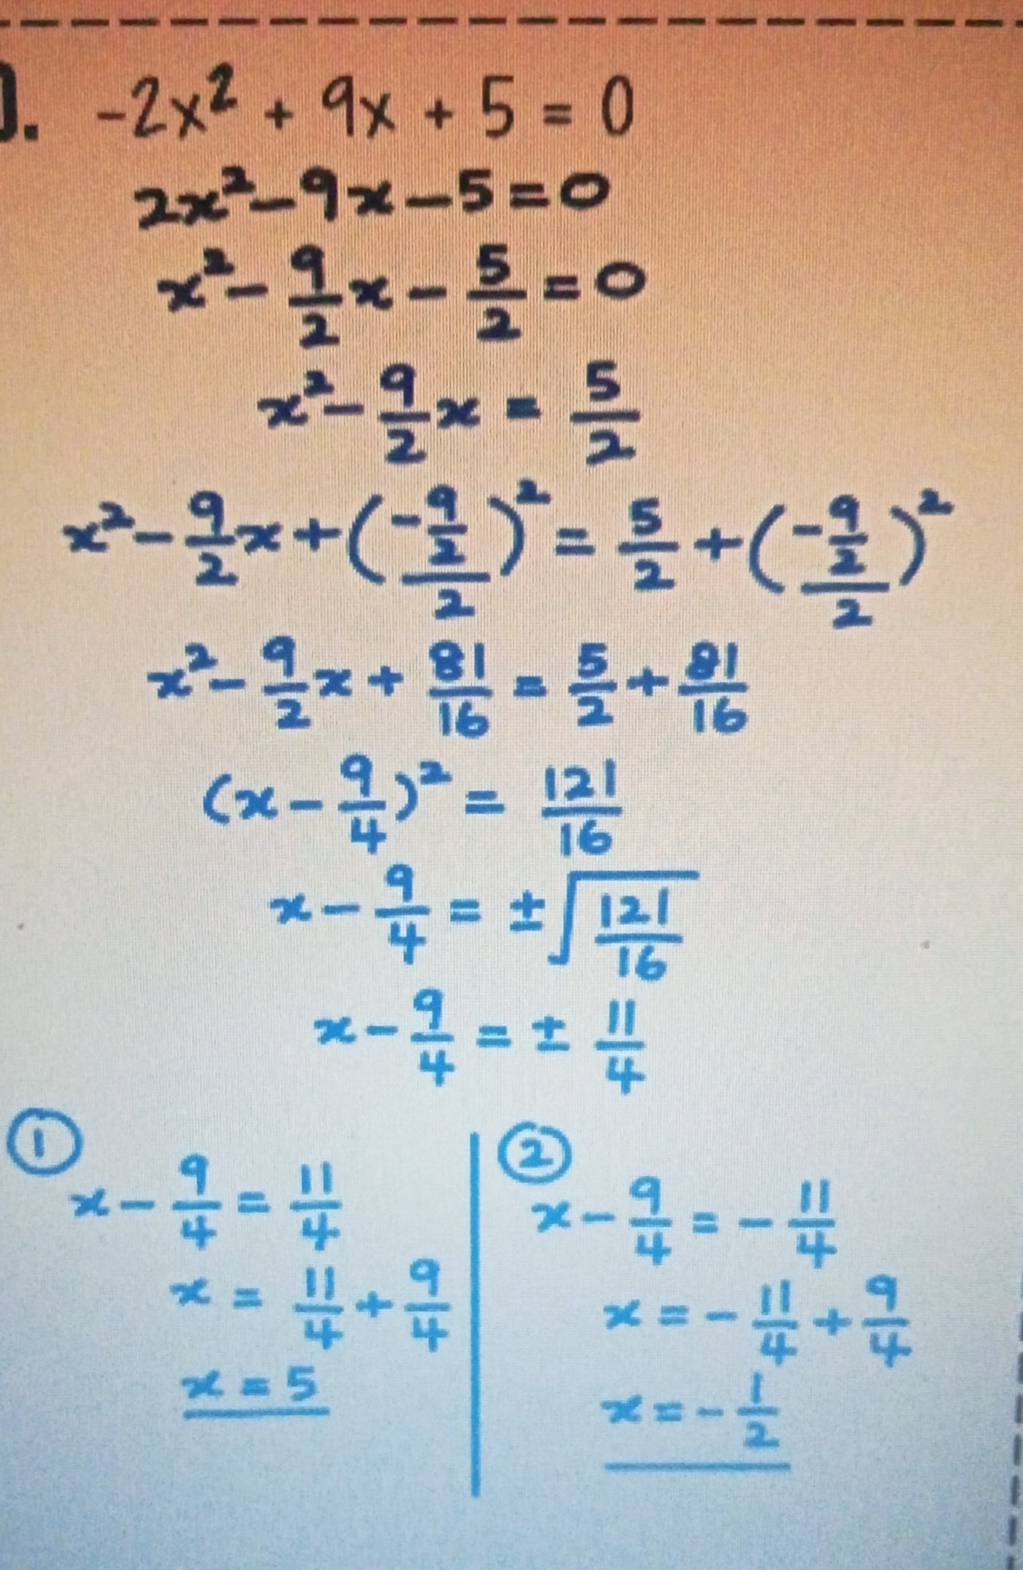 . -2x² + 9x + 5 = 0
2x² - 9x - 5 = 0
x² - 9/2 x - 5/2 = 0
x² - 9/2 x = 5/2
x² - 9/2 x + ((-9/2)/2)² = 5/2 + ((-9/2)/2)²
x² - 9/2 x + 81/16 = 5/2 + 81/16
(x - 9/4)² = 121/16
x - 9/4 = ±√(121/16)
x - 9/4 = ± 11/4
①
x - 9/4 = 11/4
x = 11/4 + 9/4
x = 5
②
x - 9/4 = - 11/4
x = - 11/4 + 9/4
x = - 1/2